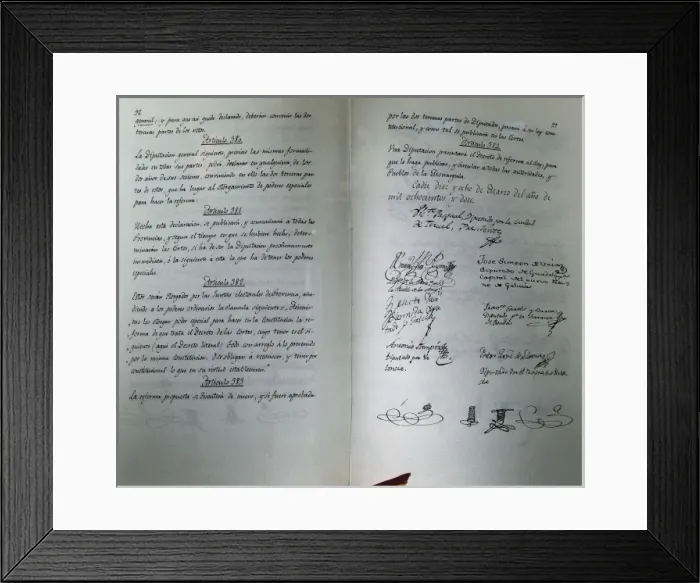 92
general; y para que así quede declarado, deberán convenir las dos
terceras partes de los votos.
Artículo 380.
La Diputacion general siguiente, previas las mismas formali-
dades en todas sus partes, podrá declarar en cualquiera de los
dos años de sus sesiones, conviniendo en ello las dos terceras par-
tes de votos, que ha lugar al otorgamiento de poderes especiales
para hacer la reforma.
Artículo 381.
Hecha esta declaracion, se publicará, y comunicará á todas las
Provincias, y segun el tiempo en que se hubiere hecho, deter-
minarán las Cortes, si ha de ser la Diputacion proximamente
inmediata, ó la siguiente á esta la que ha de traer los poderes
especiales.
Artículo 382.
Estos serán otorgados por las Juntas electorales de Provincia, aña-
diendo á los poderes ordinarios la clausula siguiente: "Asimis-
mo les otorgan poder especial para hacer en la Constitucion la re-
forma de que trata el Decreto de las Cortes, cuyo tenor es el si-
guiente: (aqui el Decreto literal). Todo con arreglo á lo prevenido
por la misma Constitucion. Y se obligan á reconocer, y tener por
constitucional lo que en su virtud establecieren."
Artículo 383.
La reforma propuesta se discutirá de nuevo, y si fuere aprobada
por las dos terceras partes de Diputados, pasará á ser ley cons-
titucional, y como tal se publicará en las Cortes.
Artículo 384.
Una Diputacion presentará el Decreto de reforma al Rey, para
que le haga publicar, y circular á todas las autoridades, y
Pueblos de la Monarquía.
Cadiz diez y ocho de Marzo del año de
mil ochocientos y doce.
por la Ciudad
de Teruel, Presidente
Jose Simeon de Uria
diputado de Guadalaxara
Capital del nuevo Rei-
no de Galicia
Antonio
Diputado por Va-
lencia.